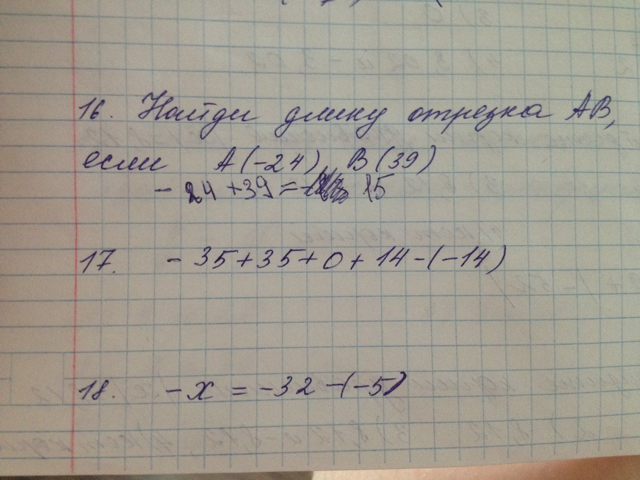 16. Найди длину отрезка AB,
если A(-24), B(39)
-24+39= 15
17. -35+35+0+14-(-14)
18. -x = -32-(-5)